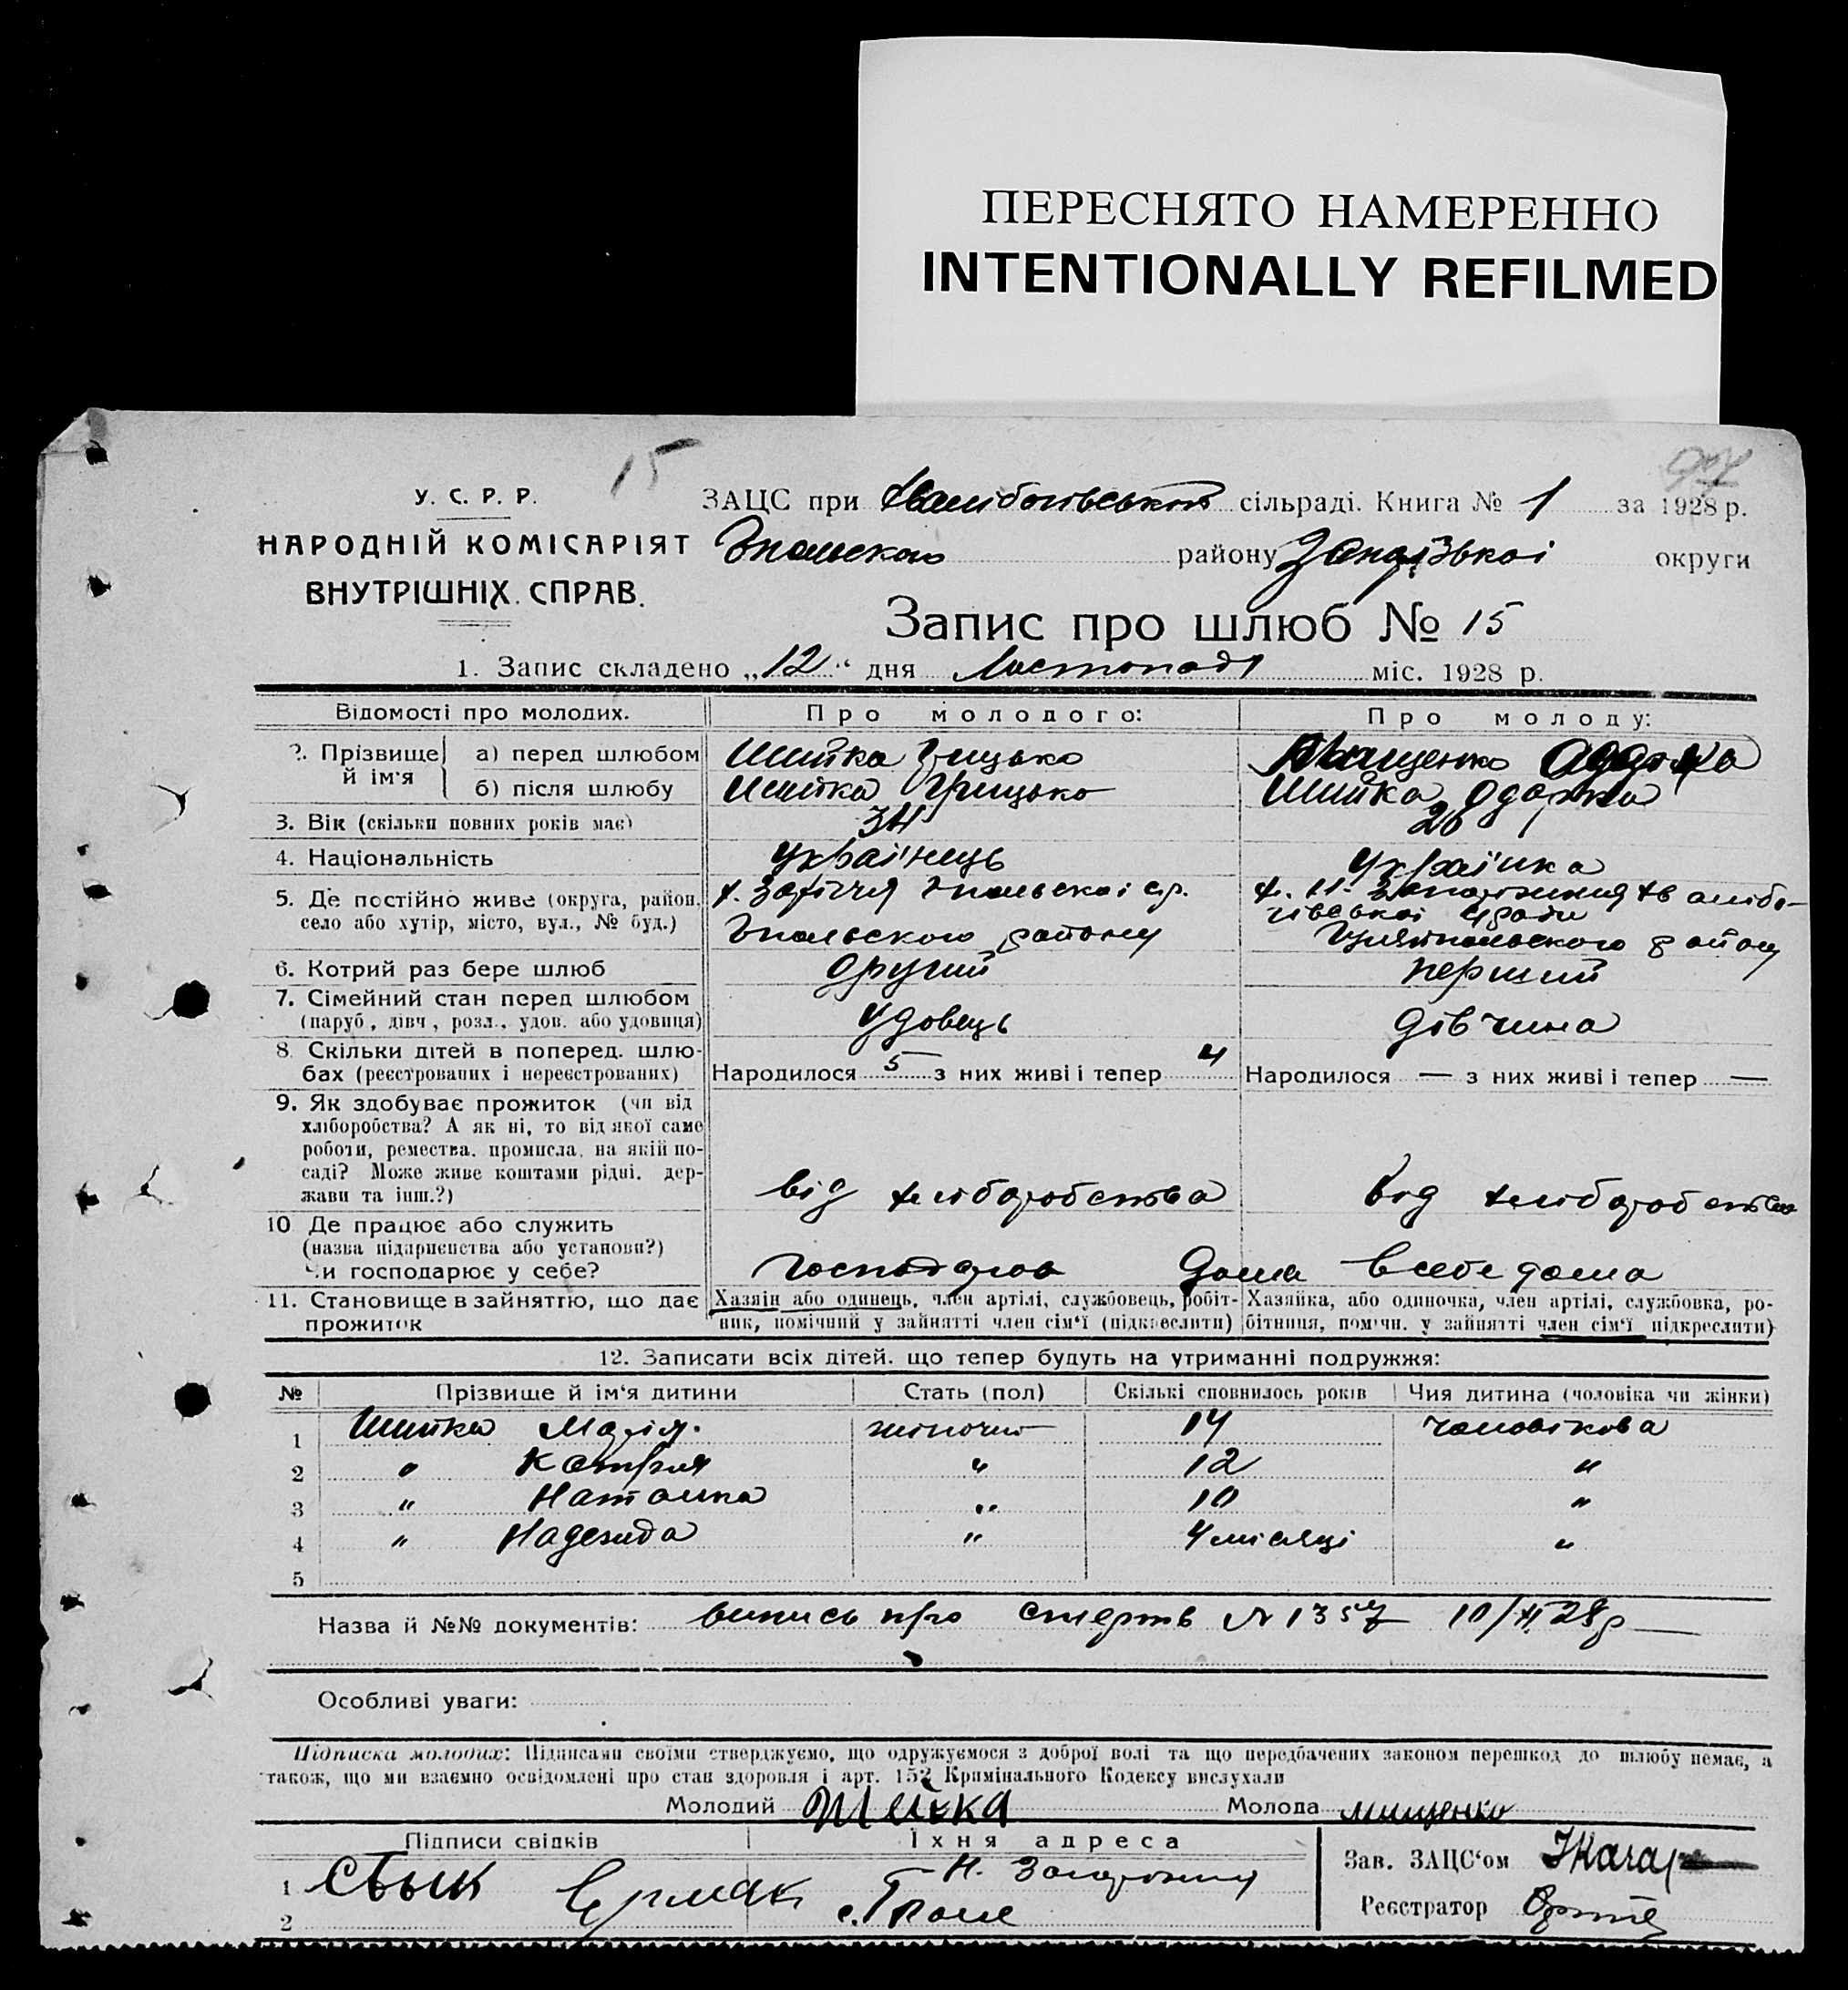 ПЕРЕСНЯТО НАМЕРЕННО
INTENTIONALLY REFILMED
15
97
У. С. Р. Р.
НАРОДНІЙ КОМІСАРІЯТ
ВНУТРІШНІХ СПРАВ.
ЗАЦС при сільраді. Книга № 1 за 1928 р.
району округи
Запис про шлюб № 15
1. Запис складено „12“ дня Листопада міс. 1928 р.
Відомості про молодих. Про молодого: Про молоду:
2. Прізвище й ім'я
а) перед шлюбом Шийка Грицько
б) після шлюбу Шийка Грицько Шийка Одарка
3. Вік (скільки повних років має) 34 20
4. Національність українець українка
5. Де постійно живе (округа, район, х. Заріччя
село або хутір, місто, вул., № буд.) району району
6. Котрий раз бере шлюб другий перший
7. Сімейний стан перед шлюбом
(паруб., дівч., розл., удов. або удовиця) удовець дівчина
8. Скільки дітей в поперед. шлю-
бах (реєстрованих і нереєстрованих) Народилося 5 з них живі і тепер 4 Народилося — з них живі і тепер —
9. Як здобуває прожиток (чи від
хліборобства? А як ні, то від якої саме
роботи, ремества, промисла, на якій по-
саді? Може живе коштами рідні, дер-
жави та інш.?) від хліборобства від хліборобства
10 Де працює або служить
(назва підприємства або установи?)
Чи господарює у себе? дома в себе дома
11. Становище в зайняттю, що дає
прожиток
Хазяїн або одинець, член артілі, службовець, робіт-
ник, помічний у зайнятті член сім'ї (підкреслити)
Хазяйка, або одиночка, член артілі, службовка, ро-
бітниця, помічн. у зайнятті член сім'ї підкреслити)
12. Записати всіх дітей, що тепер будуть на утриманні подружжя:
№ Прізвище й ім'я дитини Стать (пол) Скількі сповнилось років Чия дитина (чоловіка чи жінки)
1 Шийка Марія. жіноча 14 чоловікова
2 " Катря " 12 "
3 " Наталка " 10 "
4 " Надежда " 4 місяці "
5
Назва й №№ документів: випись про смерть № 1357 10/XI 28р
Особливі уваги:
Підписка молодих: Підписами своїми стверджуємо, що одружуємося з доброї волі та що передбачених законом перешкод до шлюбу немає, а
також, що ми взаємно освідомлені про стан здоровля і арт. 152 Кримінального Кодексу вислухали
Молодий Шийка Молода Мищенко
Підписи свідків Їхня адреса
1 Єрмак
2
Зав. ЗАЦС'ом
Реєстратор